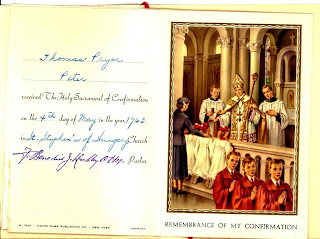 Thomas Pryor
Peter
received The Holy Sacrament of Confirmation
on the 4th day of May in the year 1963
in St. Stephen's of Hungary Church
F. Benedict J. Pastor
REMEMBRANCE OF MY CONFIRMATION